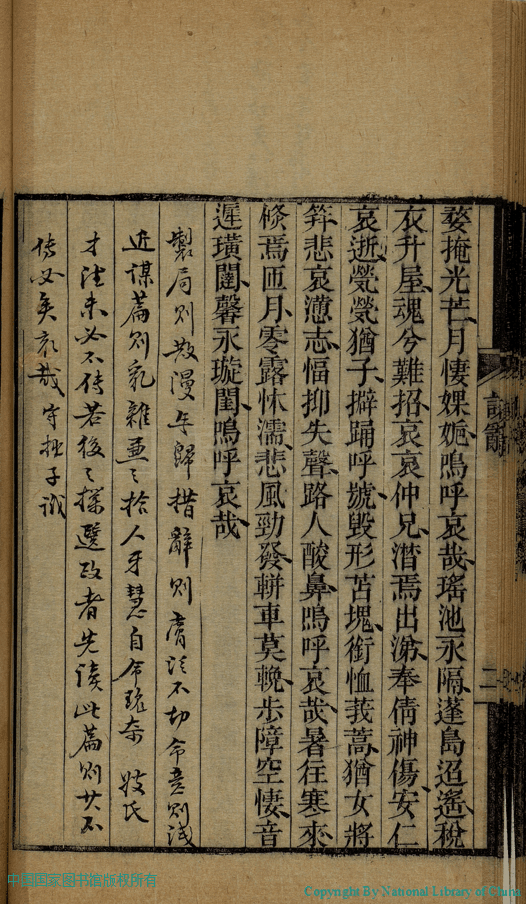 婺掩光芒月悽婐妮嗚呼哀哉瑤池永隔蓬島迢遙稅
衣升屋魂兮難招哀哀仲兄潸焉出涕奉倩神傷安仁
哀逝煢煢猶子擗踊呼號毀形苫塊銜恤莪蒿猶女將
笄悲哀懑志愊抑失聲路人酸鼻嗚呼哀哉暑往寒來
倐焉匝月零露怵濡悲風勁發輧車莫輓步障空悽音
遲璜闥馨永璇閨嗚呼哀哉
製局則散漫無歸措辭則膚泛不切命意則淺
近謀篇則亂雜並拾人牙慧自命琉
才法未必不傳若後之操選政者先讀此篇則其不
傳必矣哀哉守子識
二
中国国家图书馆版权所有
Copyright By National Library of China